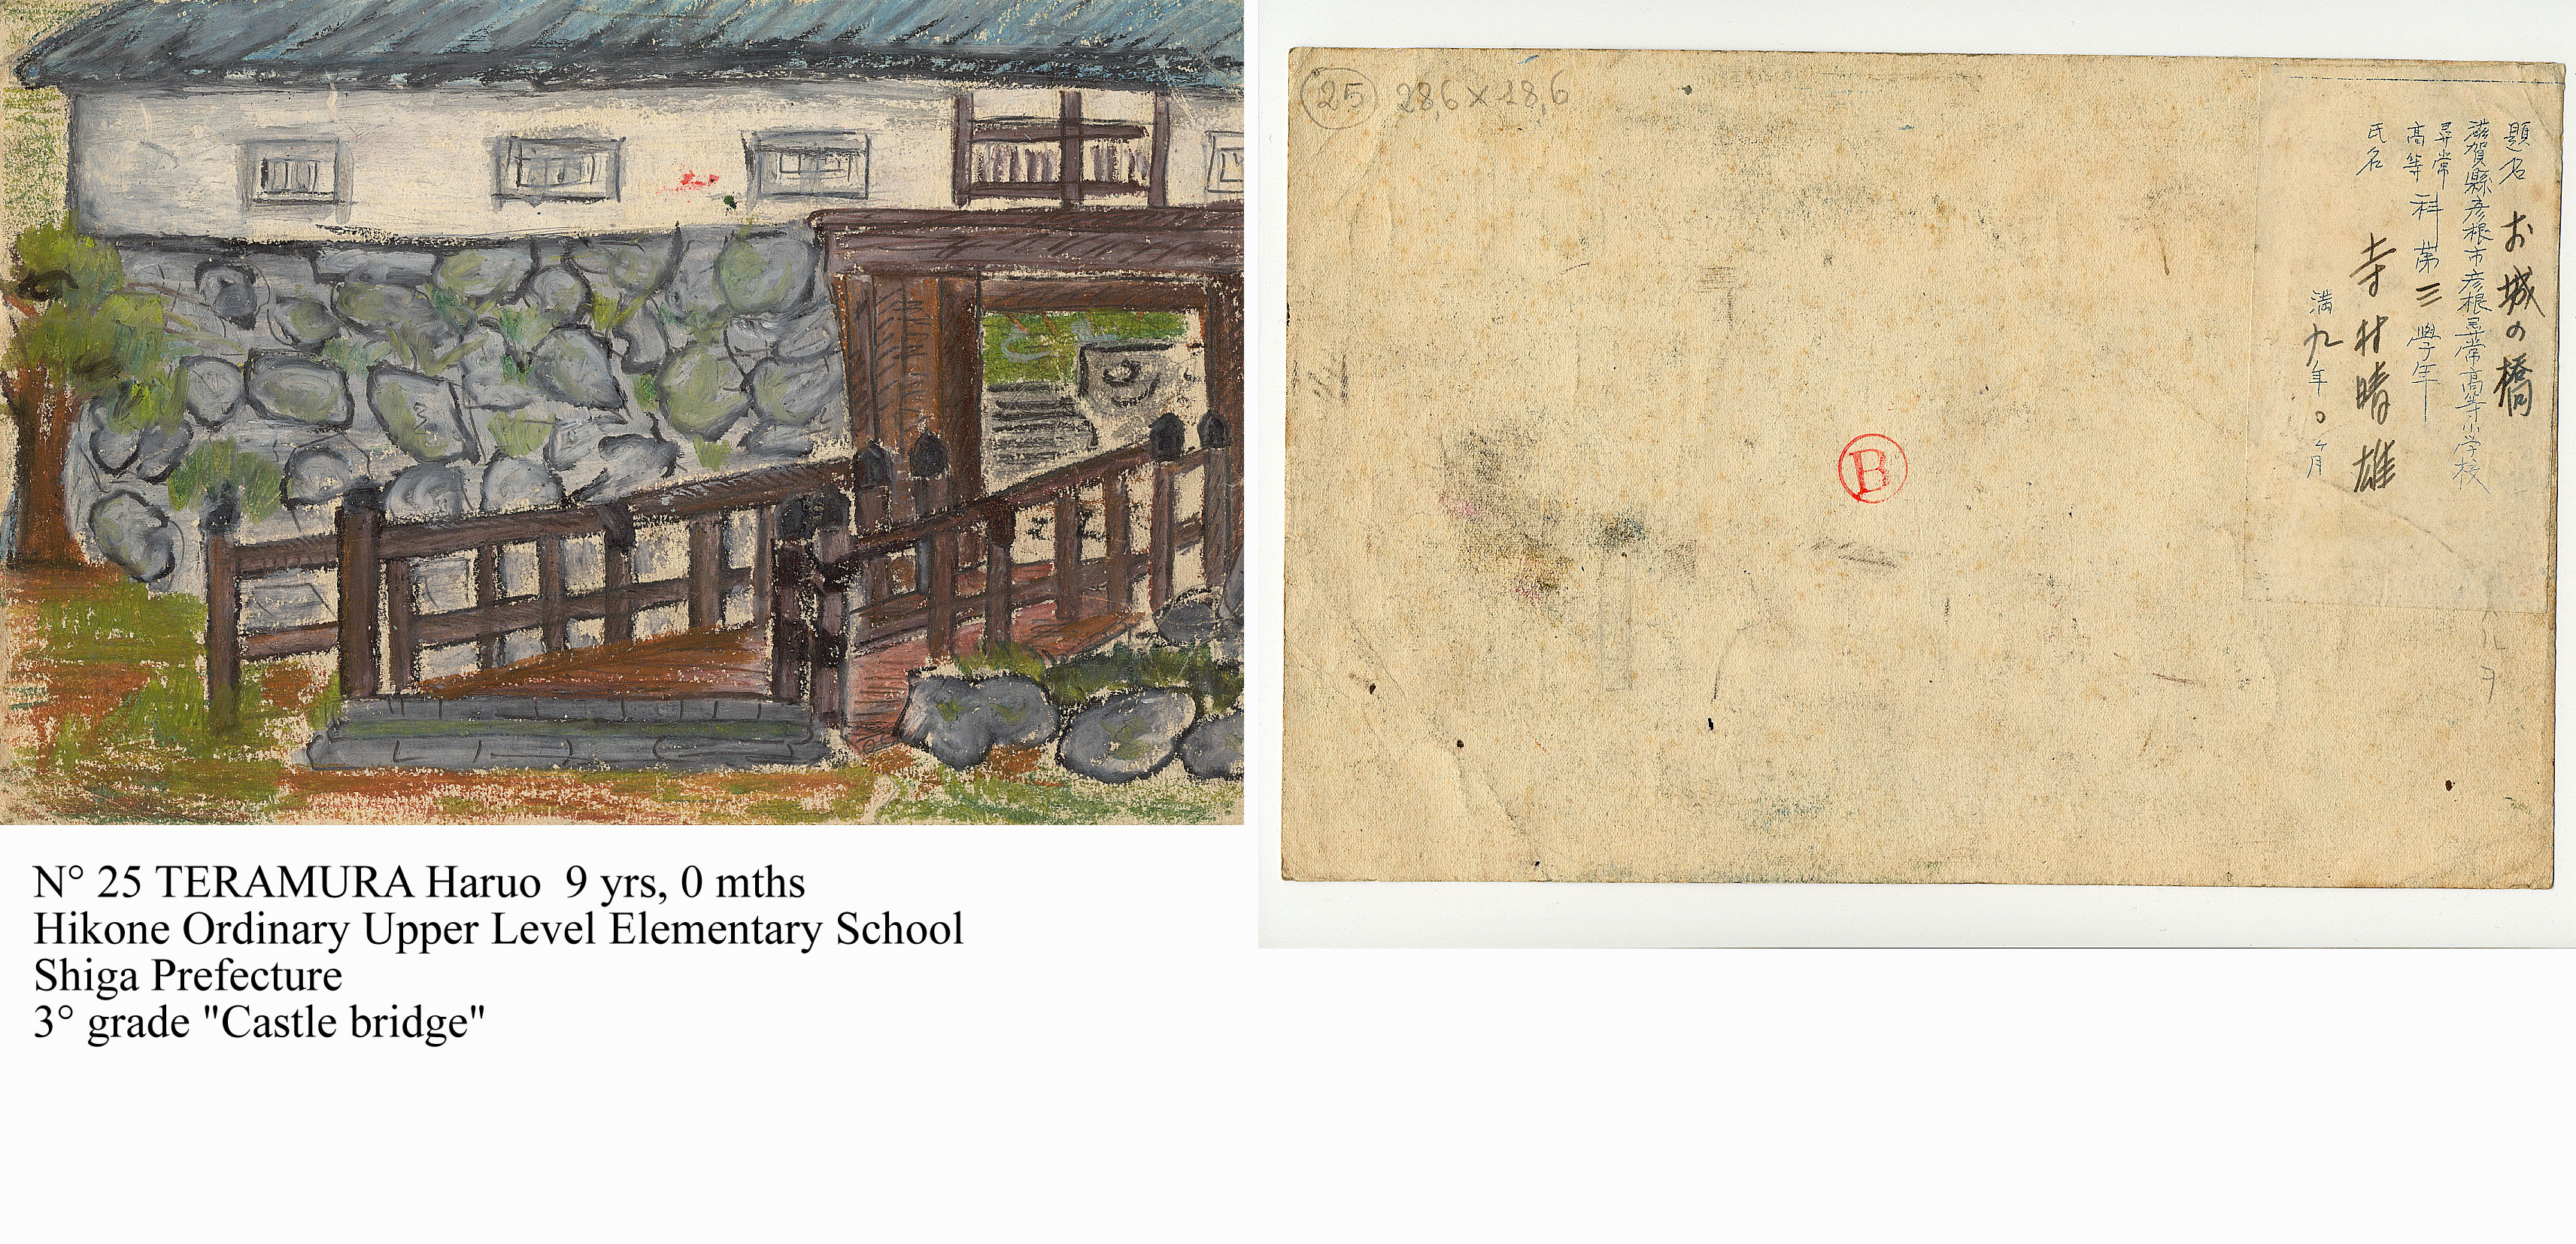 N° 25 TERAMURA Haruo 9 yrs, 0 mths
Hikone Ordinary Upper Level Elementary School
Shiga Prefecture
3° grade "Castle bridge"
25 28,6 x 18,6
題名 お城の橋
滋賀縣彦根市彦根尋常高等小学校
尋常
高等
科第三學年
氏名 寺村晴雄
満九年〇ヶ月
B